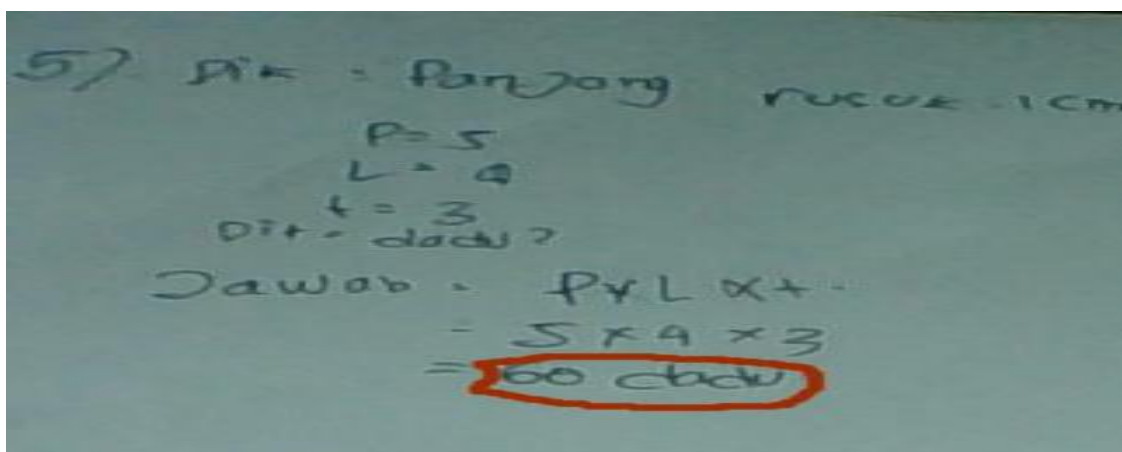 5) Dik : Panjang rusuk 1 cm
P = 5
L = 4
t = 3
Dit : dadu?
Jawab : P x L x t
= 5 x 4 x 3
= 60 dadu